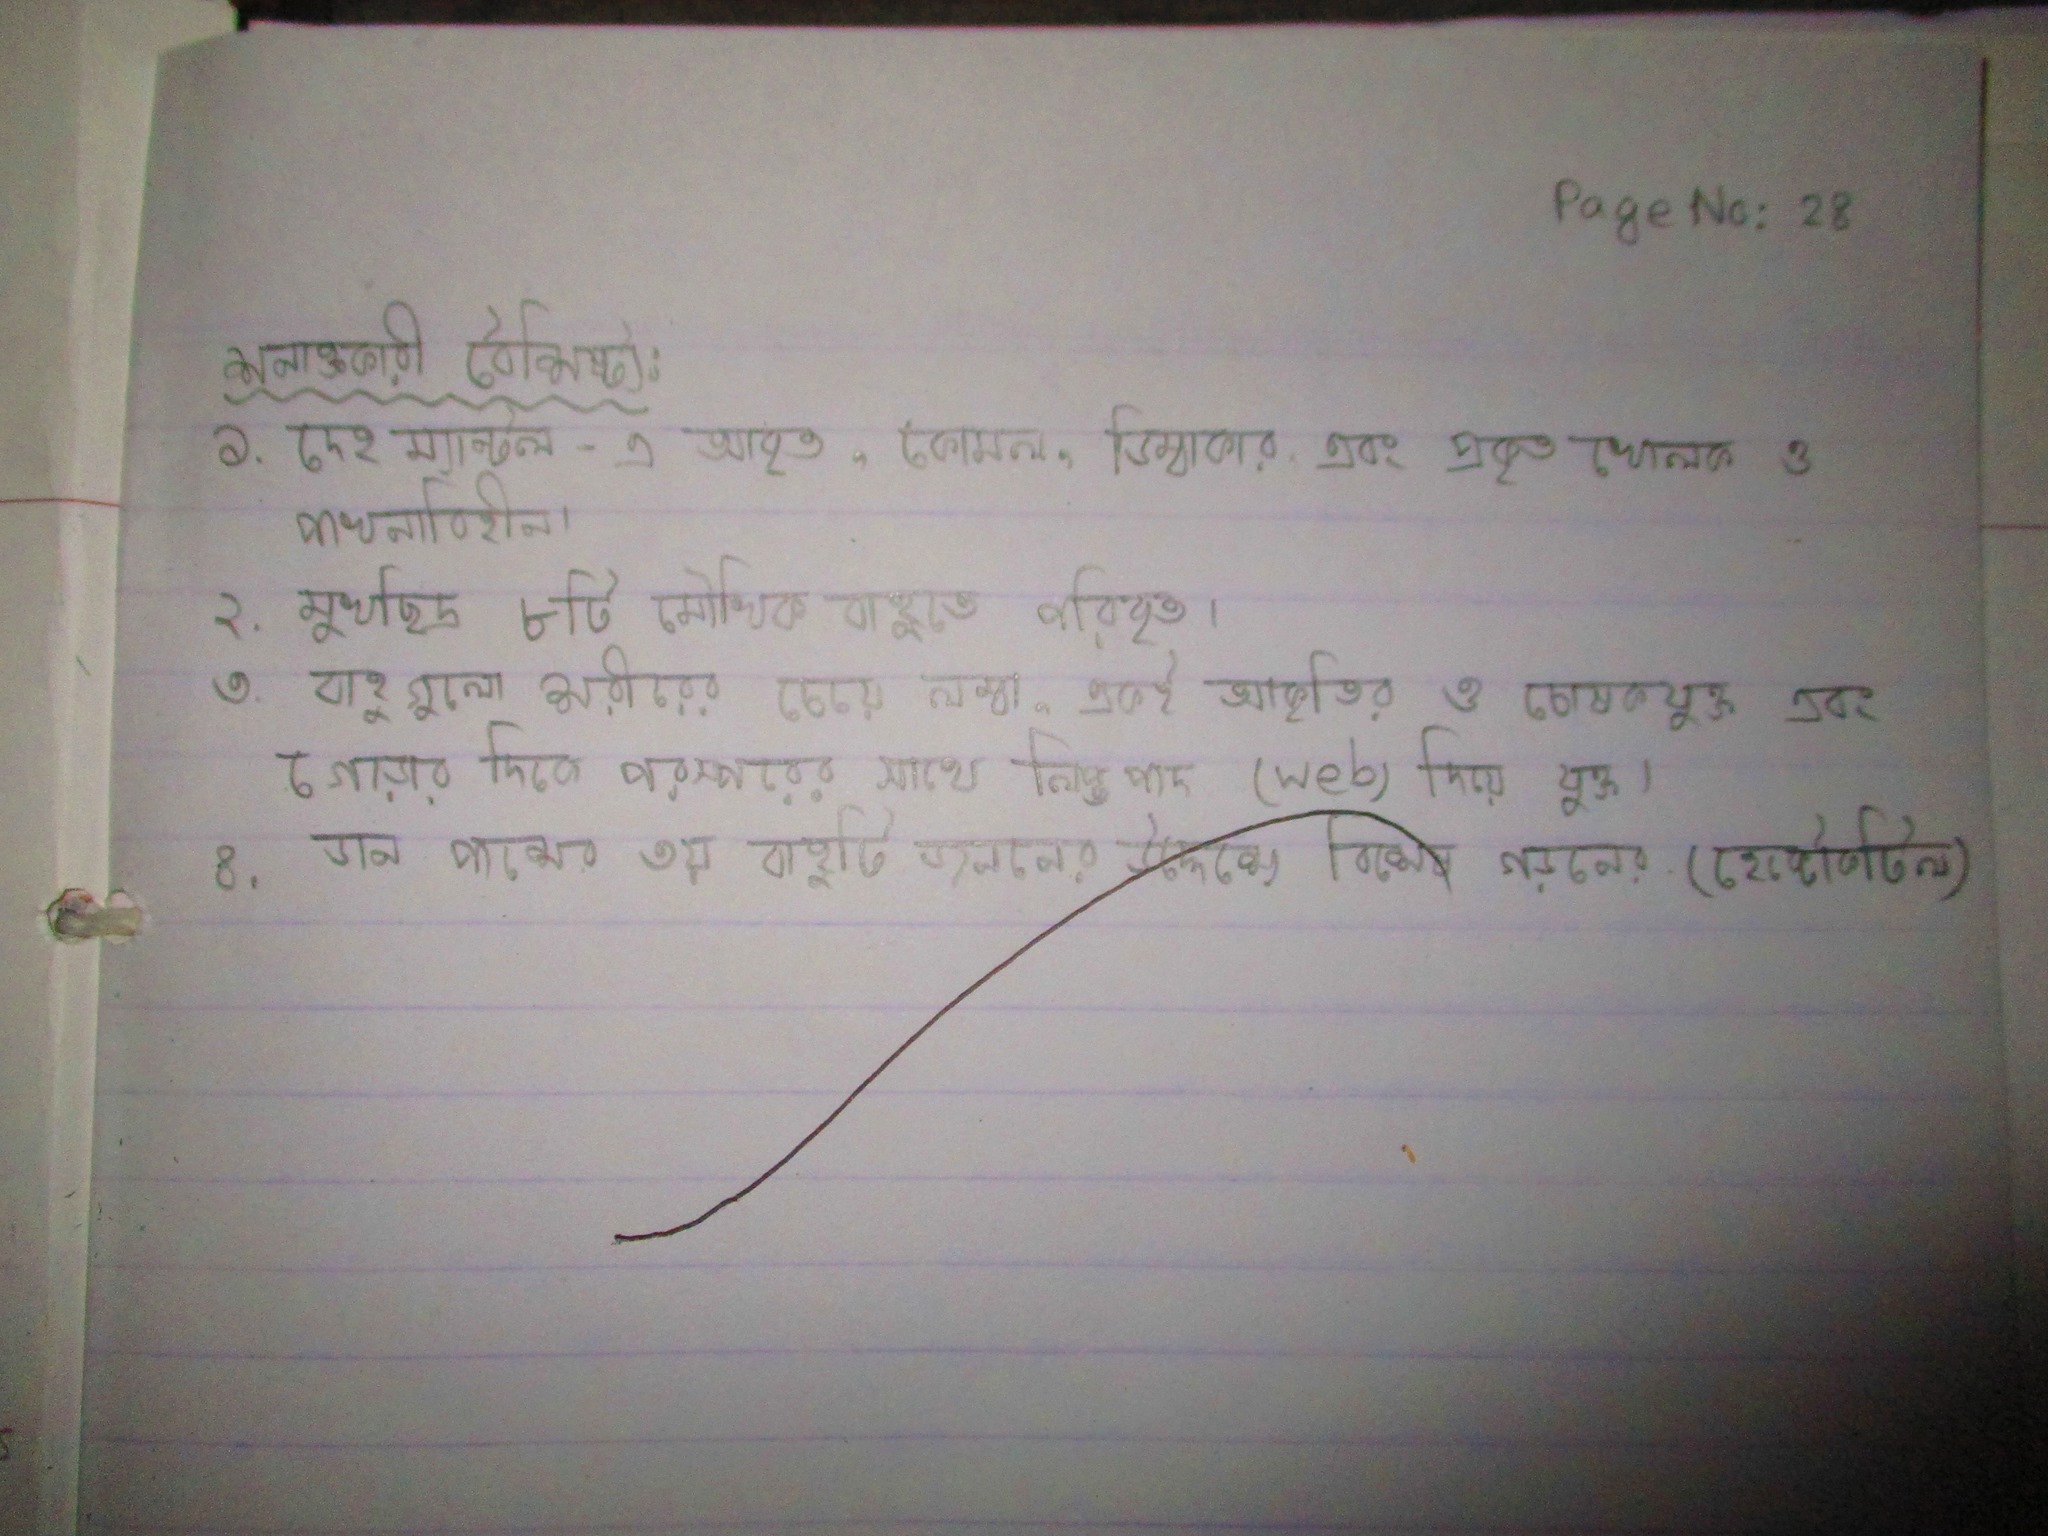 Page No: 28
শনাক্তকারী বৈশিষ্ট্য:
১. দেহ ম্যান্টল - এ আবৃত, কোমল, ডিম্বাকার এবং প্রকৃত খোলক ও
পাখনাবিহীন।
২. মুখছিদ্র ৮টি মৌখিক বাহুতে পরিবৃত।
৩. বাহুগুলো শরীরের চেয়ে লম্বা, একই আকৃতির ও চোষকযুক্ত এবং
গোড়ার দিকে পরস্পরের সাথে লিপ্তপাদ (web) দিয়ে যুক্ত।
৪. ডান পাশের ৩য় বাহুটি জননের উদ্দেশ্যে বিশেষ গড়নের (হেক্টোকটিল)